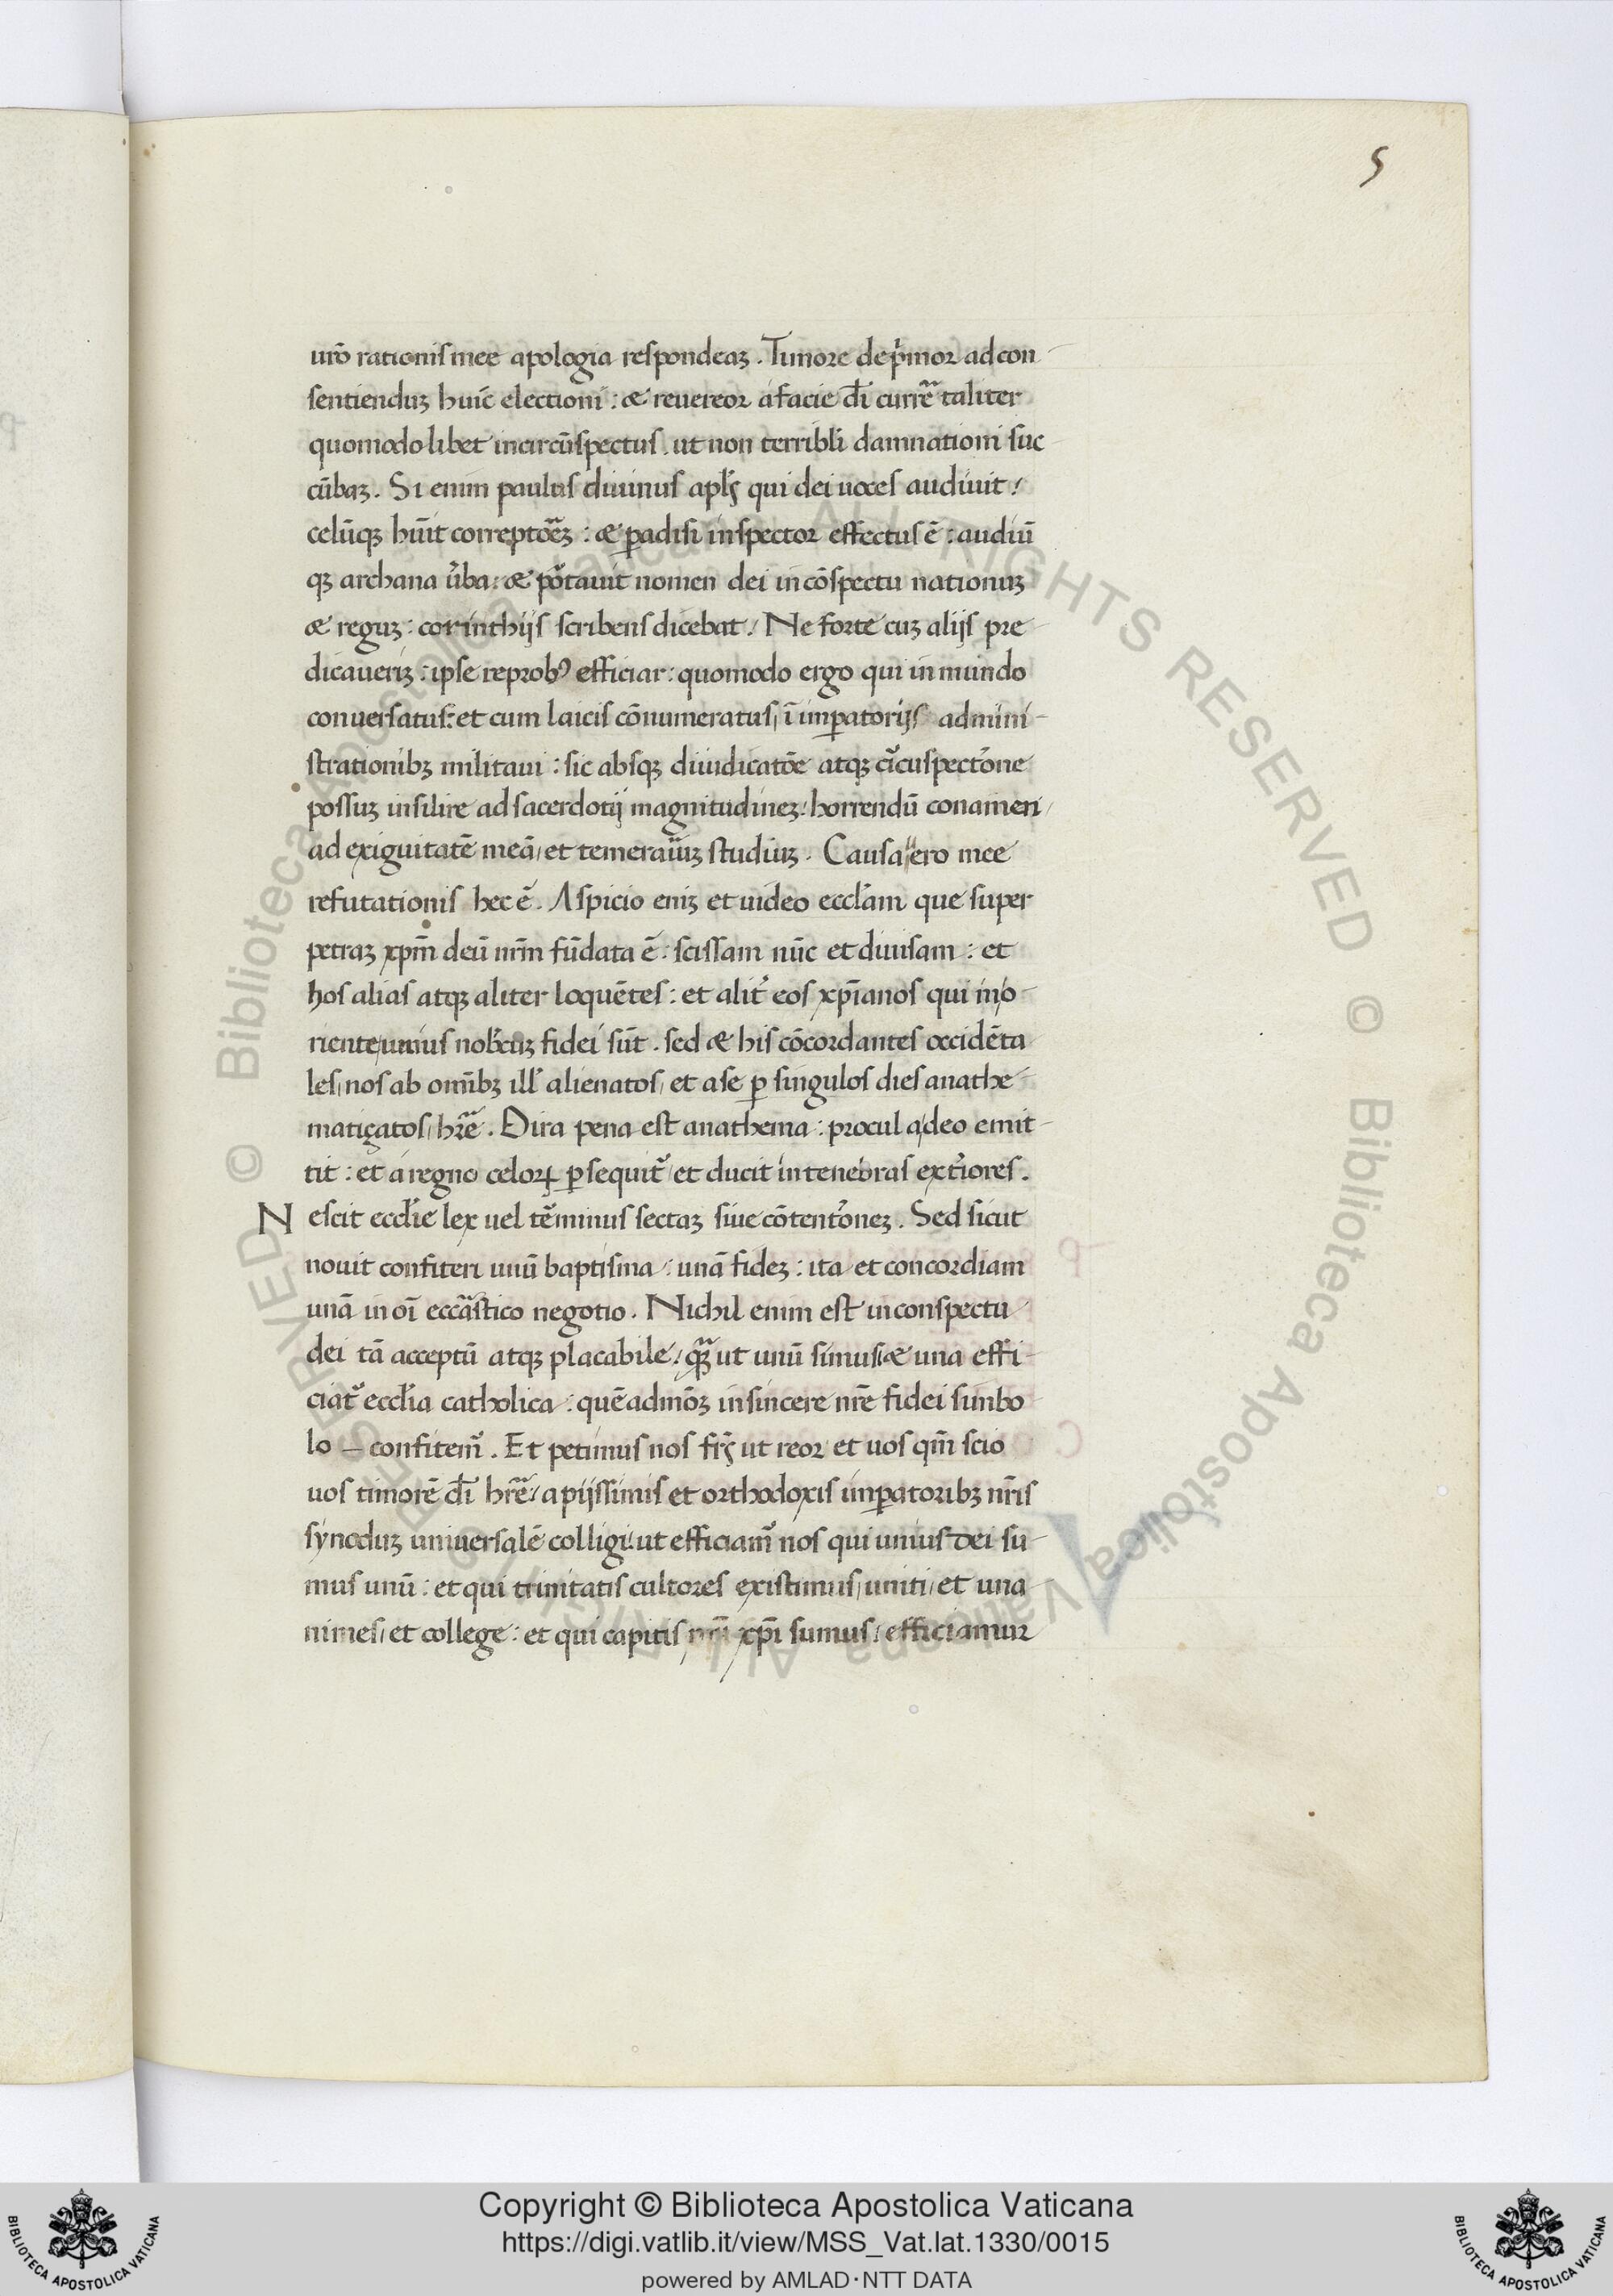 5
uro᷑ rationis mee apologia respondeaꝫ. Timore dep᷑mor ad con-
sentienduꝫ huic̄ electioni: æ reuereor a facie dī currē taliter
quomodo libet incircūspectus. ut non terribl̓i damnationi suc
cūbaꝫ. Si enim paulus diuinus apl̓s qui dei uoces audiuit!
celūqꝫ hūit correptōēꝫ: æ ꝑadisi inspector effectus ē: audiū
qꝫ archana u᷑ba: æ po᷑tauit nomen dei in cōspectu nationuꝫ
æ reguꝫ: corinthijs scribens dicebat! Ne forte cuꝫ alijs pre-
dicaueriꝫ: ipse reprobꝰ efficiar: quomodo ergo qui in mundo
conuersatus: et cum laicis cōnumeratus, ī imꝑatorijs admini-
strationibꝫ militaui: sic absqꝫ diuidicatōe atqꝫ ci᷑cuspecto᷑ne
possuꝫ insilire ad sacerdotij magnitudineꝫ. horrendū conamen
ad exiguitatē meā, et temerariuꝫ studiuꝫ. Causa uero mee
refutationis hec ē. Aspicio eniꝫ et uideo eccl̓am que super
petraꝫ xp̄m deū nr̄m fūdata ē: scissam nūc et diuisam: et
hos alias atqꝫ aliter loquētes: et alit᷑ eos xp̄ianos qui in o-
riente, unius nob̓cuꝫ fidei sūt. sed æ his cōcordantes occidēta
les, nos ab omībꝫ ill̓ alienatos, et a se ꝑ singulos dies anathe-
matiçatos, hr̄e. Dira pena est anathema: procul a deo emit-
tit: et a regno celoꝝ ꝑsequit᷑ et ducit in tenebras ext᷑iores.
N escit eccl̓ie lex uel tēminus sectaꝫ siue cōtento᷑neꝫ. Sed sicut
nouit confiteri unū baptisma: unā fideꝫ: ita et concordiam
unā in oī eccāstico negotio. Nichil enim est in conspectu
dei tā acceptū atqꝫ placabile, qꝫ ut unū simus, æ una effi-
ciat᷑ eccl̓ia catholica: quēadmōꝫ in sincere nr̄e fidei simbo
lo — confitem᷑. Et petimus nos fr̄s ut reor et uos qm̄ scio
uos timorē dī hr̄e, a pijssimis et orthodoxis imꝑatoribꝫ nr̄is
synoduꝫ uniuersalē colligi, ut efficiam᷑ nos qui unius dei su-
mus unū: et qui trinitatis cultores existimus, uniti, et una
nimes, et college: et qui capitis nr̄i xp̄i sumus, efficiamur
© Biblioteca Apostolica Vaticana ALL RIGHTS RESERVED © Biblioteca Apostolica Vaticana ALL RIGHTS RESERVED
Copyright © Biblioteca Apostolica Vaticana
https://digi.vatlib.it/view/MSS_Vat.lat.1330/0015
powered by AMLAD·NTT DATA
BIBLIOTECA APOSTOLICA VATICANA
BIBLIOTECA APOSTOLICA VATICANA